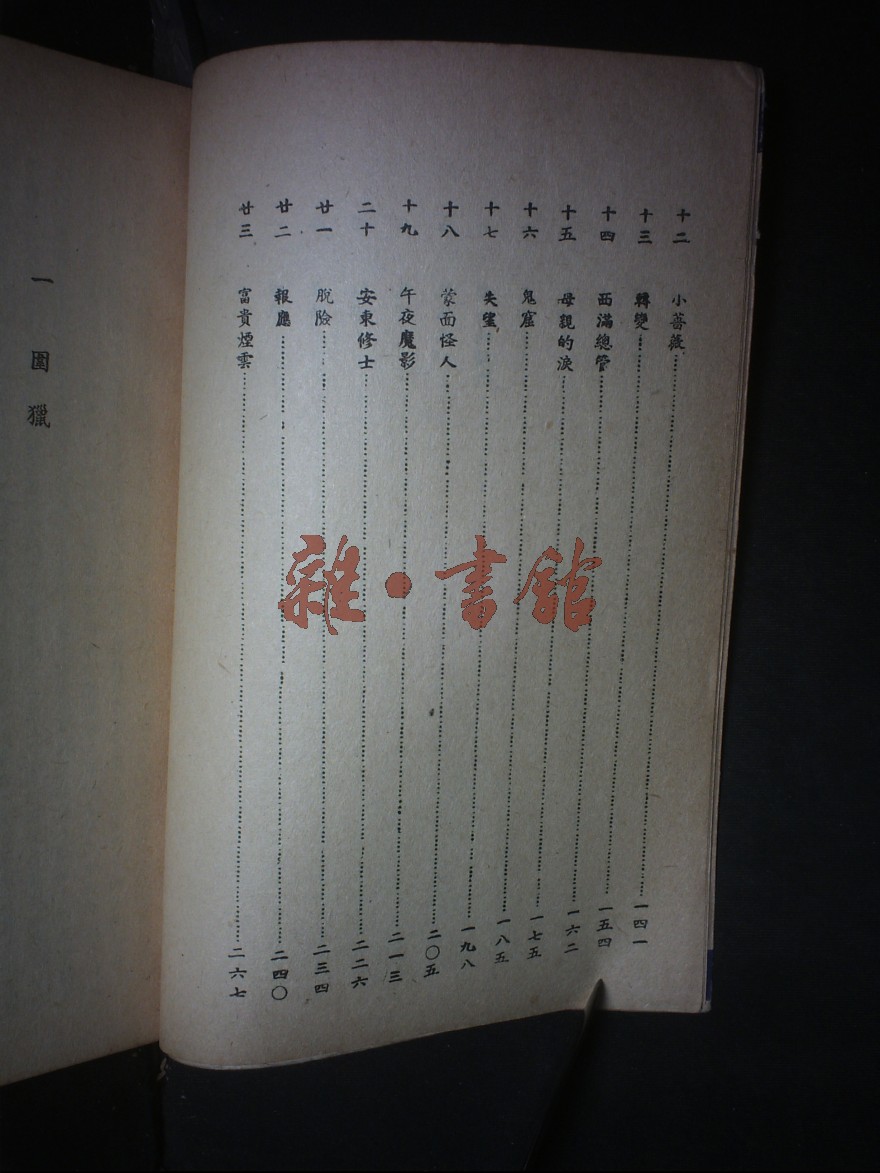 十二 小薔薇 一四一
十三 轉變 一五四
十四 西滿總管 一六二
十五 母親的淚 一七五
十六 鬼窟 一八五
十七 失望 一九八
十八 蒙面怪人 二〇五
十九 午夜魔影 二一三
二十 安東修士 二二六
廿一 脫險 二三四
廿二 報應 二四〇
廿三 富貴煙雲 二六七
一 圍獵
雜·書館